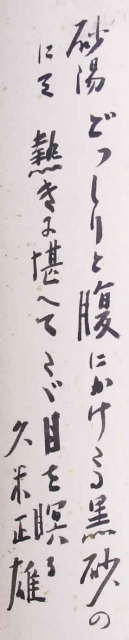 砂陽 どつしりと腹にかけたる黒砂の
にて 熱きに堪へてたゞ目を瞑る
久米正雄